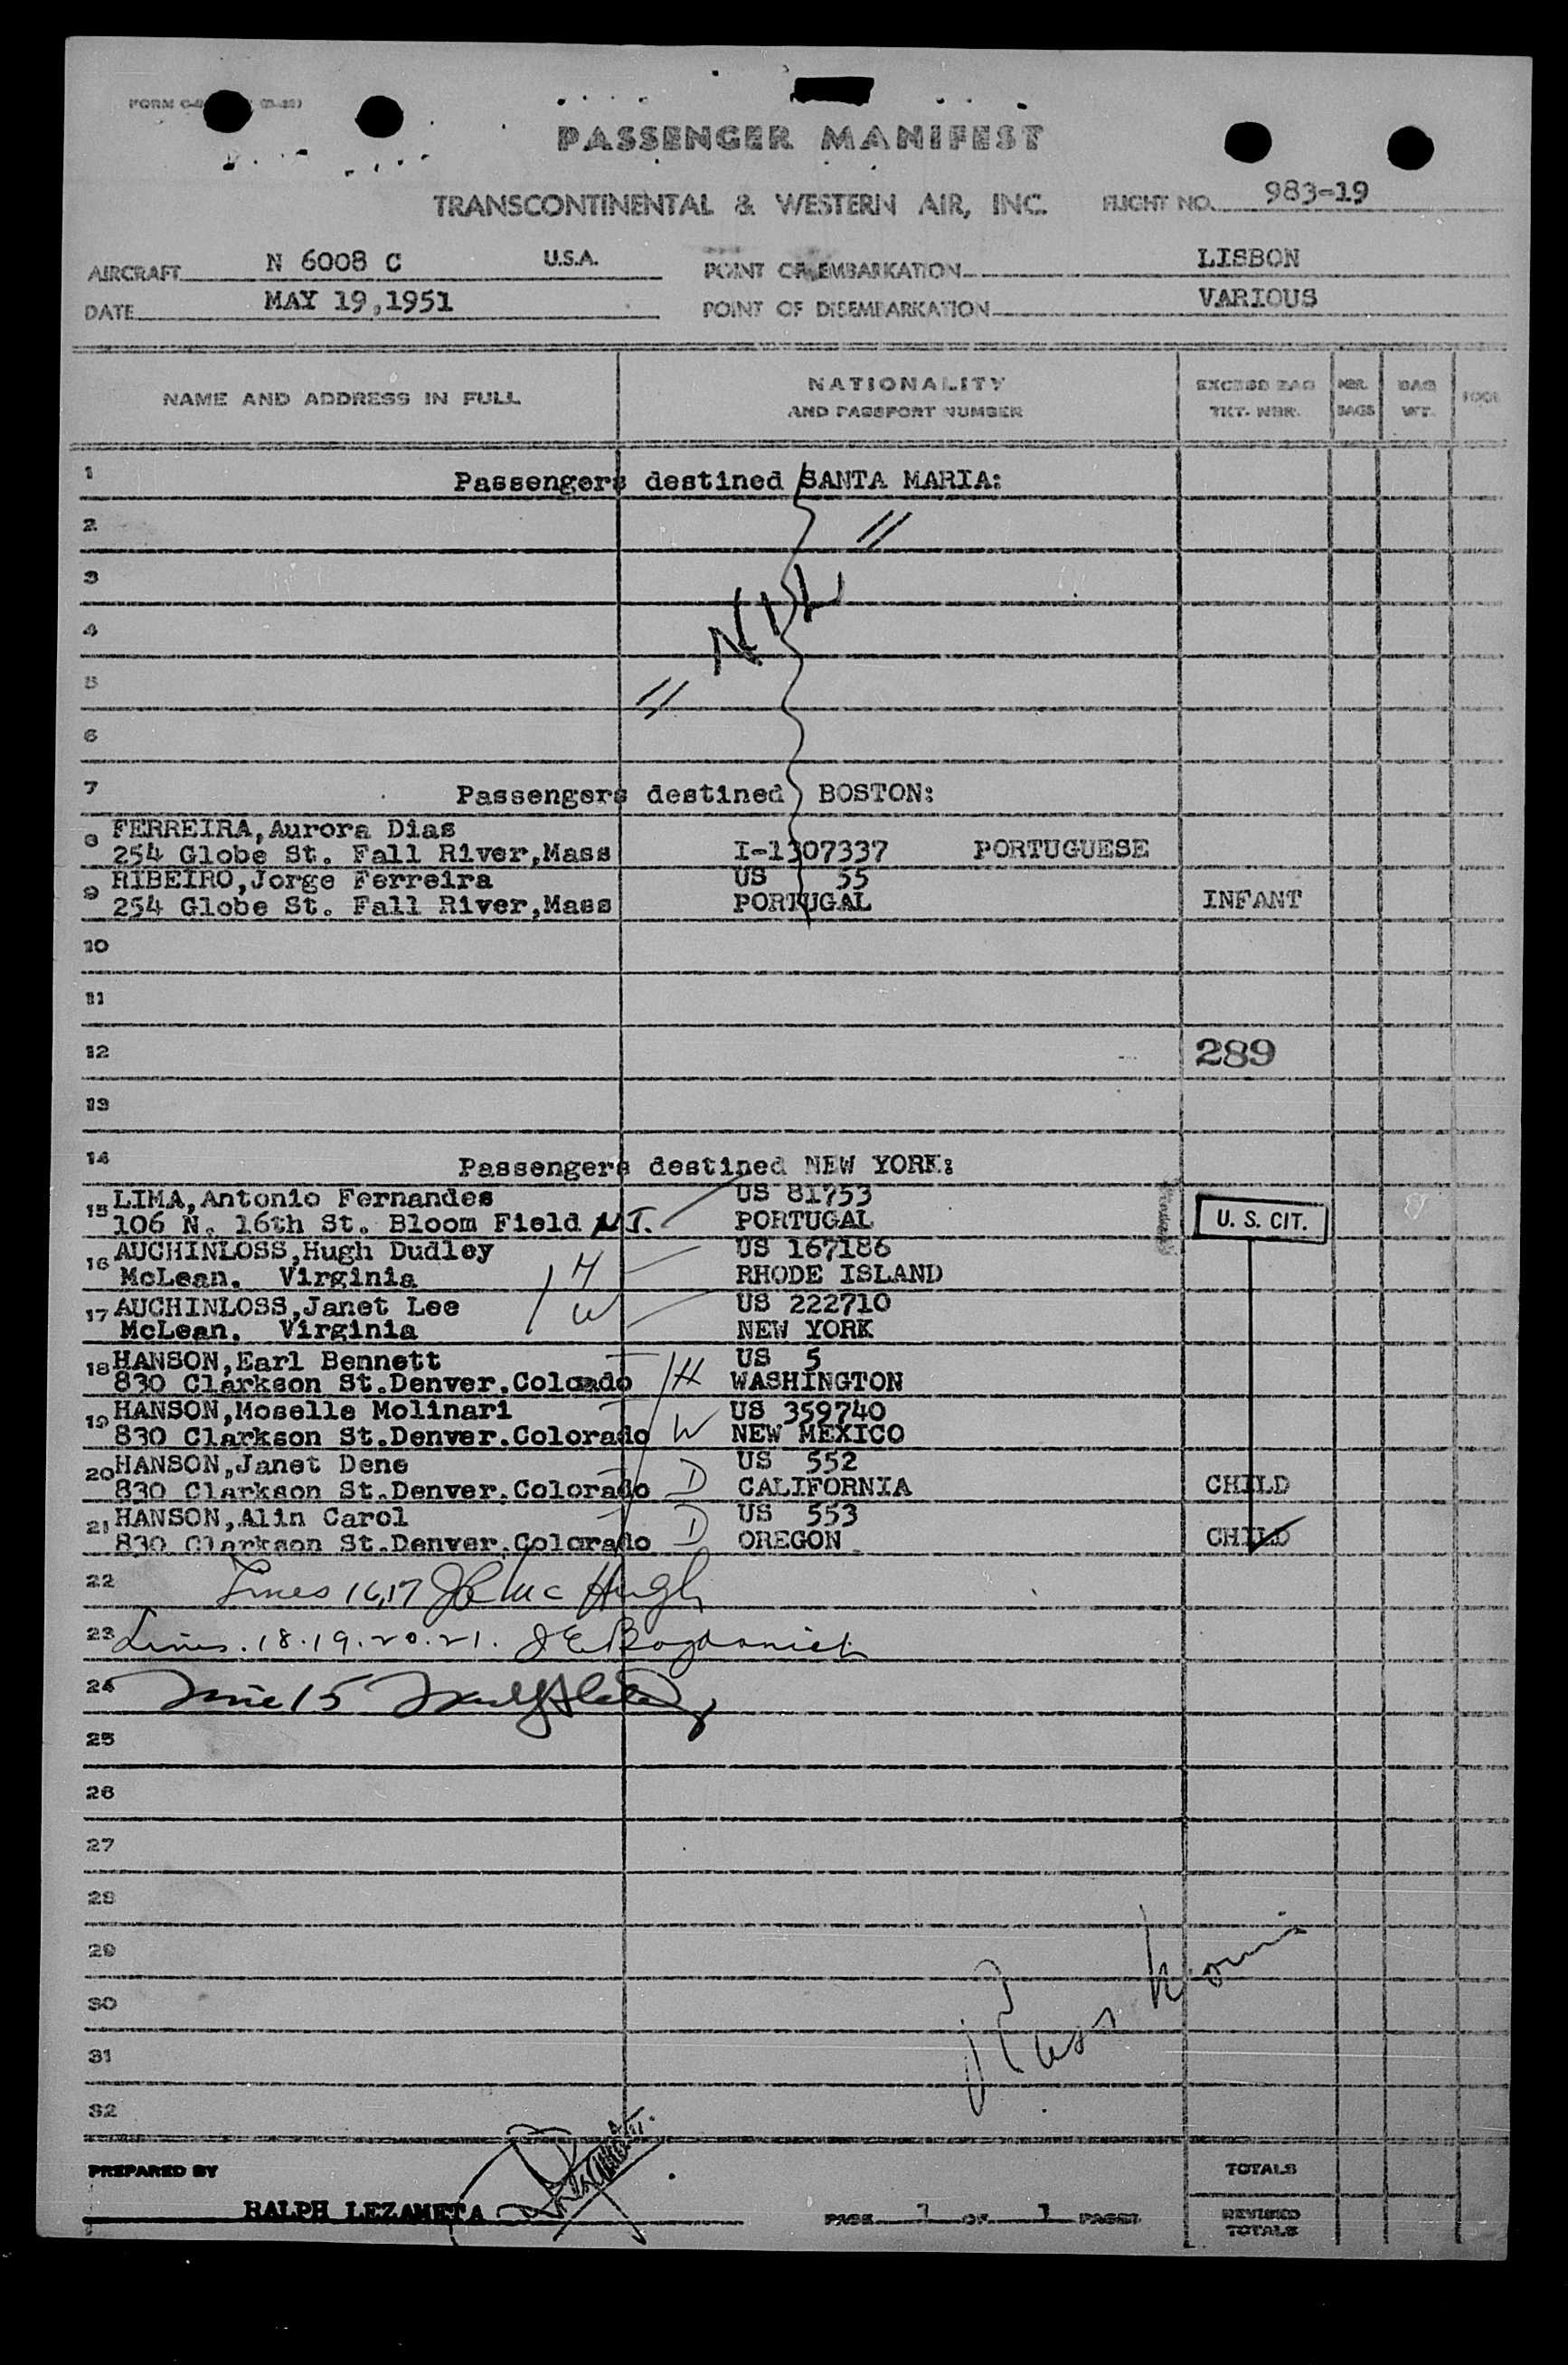 PASSENGER MANIFEST
TRANSCONTINENTAL & WESTERN AIR, INC. FLIGHT NO. 983-19
AIRCRAFT N 6008 C U.S.A. POINT OF EMBARKATION LISBON
DATE MAY 19,1951 POINT OF DISEMBARKATION VARIOUS
NAME AND ADDRESS IN FULL NATIONALITY AND PASSPORT NUMBER EXCESS BAG TKT. NBR. NBR. BAGS BAG WT.
1 Passengers destined SANTA MARIA:
2
3
NIL
4
5
6
7 Passengers destined BOSTON:
8 FERREIRA,Aurora Dias
254 Globe St. Fall River,Mass I-1307337 PORTUGUESE
9 RIBEIRO,Jorge Ferreira US 55
254 Globe St. Fall River,Mass PORTUGAL INFANT
10
11
12 289
13
14 Passengers destined NEW YORK:
15 LIMA,Antonio Fernandes US 81753
106 N. 16th St. Bloom Field N.J. PORTUGAL U. S. CIT.
16 AUCHINLOSS,Hugh Dudley US 167186
McLean. Virginia H RHODE ISLAND
17 AUCHINLOSS,Janet Lee US 222710
McLean. Virginia W NEW YORK
18 HANSON,Earl Bennett US 5
830 Clarkson St.Denver.Colorado H WASHINGTON
19 HANSON,Moselle Molinari US 359740
830 Clarkson St.Denver.Colorado W NEW MEXICO
20 HANSON,Janet Dene US 552
830 Clarkson St.Denver.Colorado D CALIFORNIA CHILD
21 HANSON,Alin Carol US 553
830 Clarkson St.Denver.Colorado D OREGON CHILD
22 Lines 16,17 Mc Hugh
23 Lines. 18.19.20.21. J E Bogdanich
24 Line 15
25
26
27
28
29
30
31
32
PREPARED BY TOTALS
RALPH LEZAMETA PAGE 1 OF 1 PAGES REVISED TOTALS